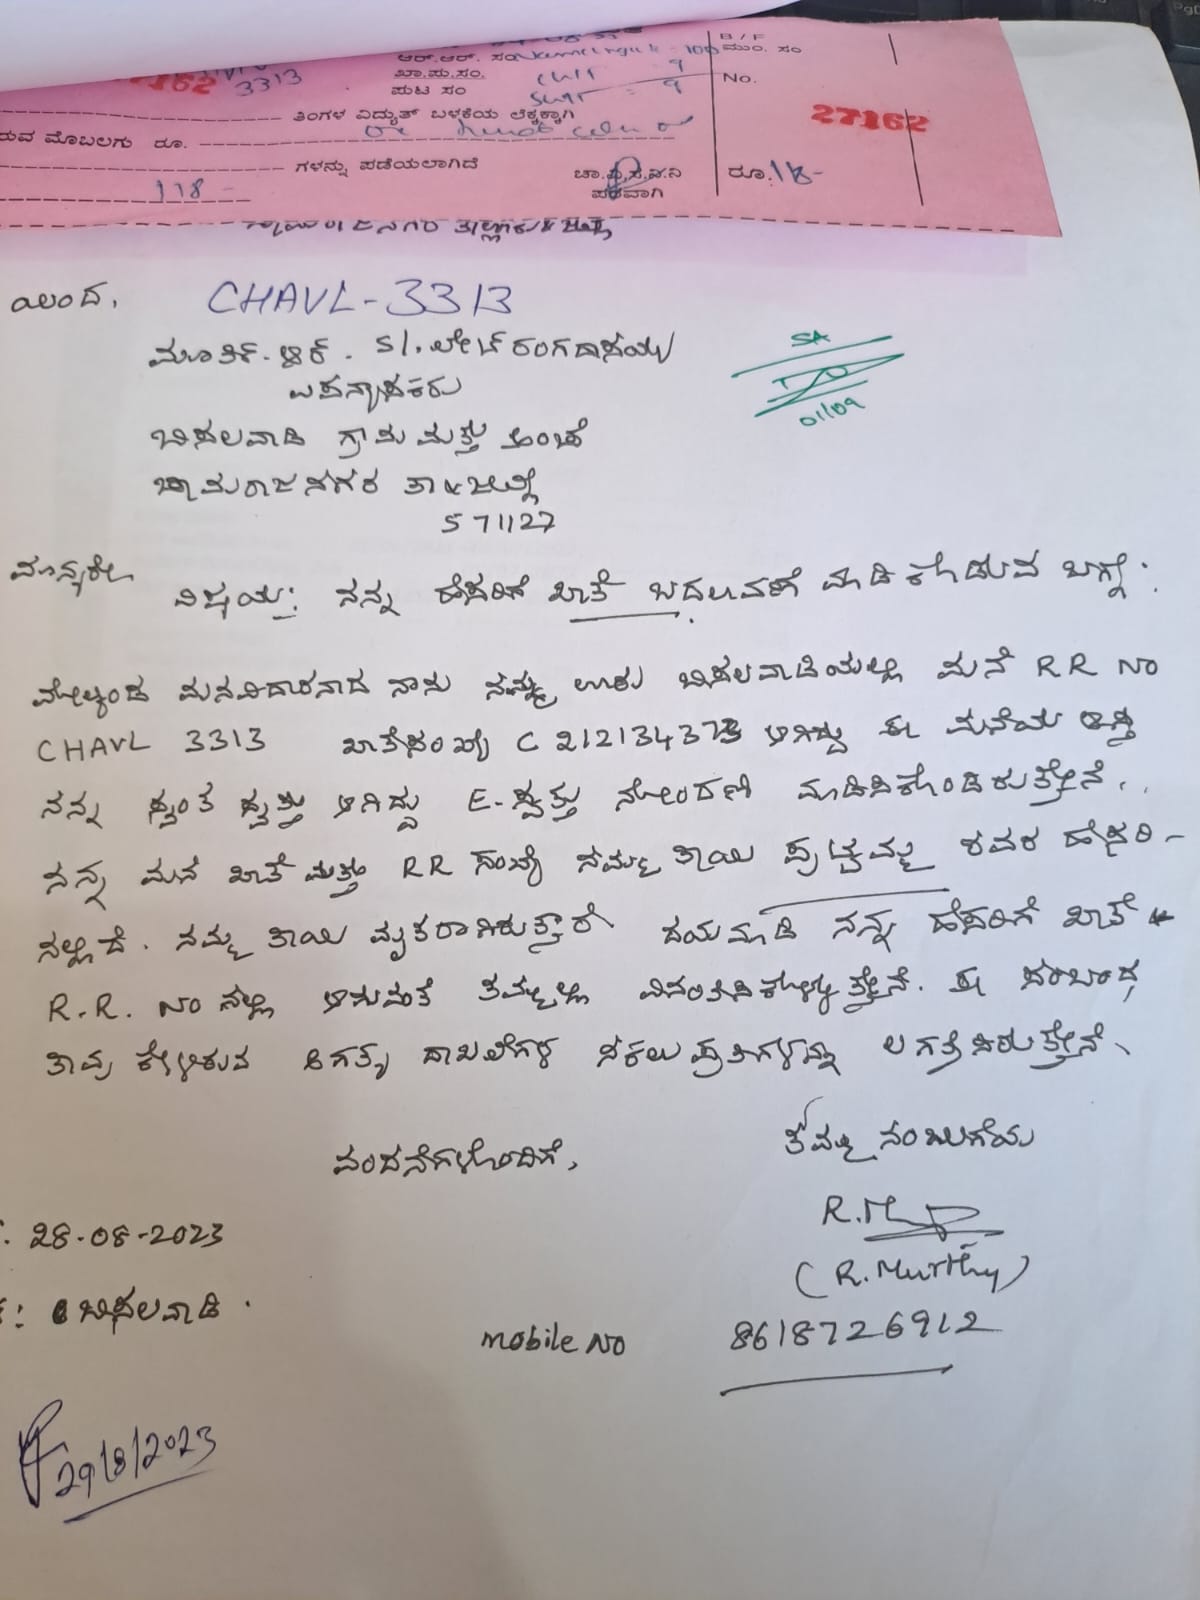 ಆರ್.ಆರ್. ಸಂ
B / F
ಮುಂ. ಸಂ
27162 3313
ಖಾ.ಪು.ಸಂ.
ಪುಟ ಸಂ
No.
27162
ತಿಂಗಳ ವಿದ್ಯುತ್ ಬಳಕೆಯ ಲೆಕ್ಕಕ್ಕಾಗಿ
ರುವ ಮೊಬಲಗು ರೂ.
ಗಳನ್ನು ಪಡೆಯಲಾಗಿದೆ
ಚಾ.ವಿ.ಸ.ನಿ.ನಿ
ಪರವಾಗಿ
ರೂ. 118-
118-
ಯಿಂದ,
CHAVL-3313
ಮೂರ್ತಿ.ಆರ್. S/. ಲೇಟ್ ರಂಗದಾಸಯ್ಯ
ಉಪನ್ಯಾಸಕರು
ಬಿಸಲವಾಡಿ ಗ್ರಾಮ ಮತ್ತು ಅಂಚೆ
ಚಾಮರಾಜನಗರ ತಾ & ಜಿಲ್ಲೆ
571127
SA
01/09
ಮಾನ್ಯರೇ
ವಿಷಯ: ನನ್ನ ಹೆಸರಿಗೆ ಖಾತೆ ಬದಲಾವಣೆ ಮಾಡಿಕೊಡುವ ಬಗ್ಗೆ.
ಮೇಲ್ಕಂಡ ಮನವಿದಾರನಾದ ನಾನು ನಮ್ಮ ಊರು ಬಿಸಲವಾಡಿಯಲ್ಲಿ ಮನೆ RR NO
CHAVL 3313 ಖಾತೆಸಂಖ್ಯೆ ಆಗಿದ್ದು ಈ ಮನೆಯ ಆಸ್ತಿ
ನನ್ನ ಸ್ವಂತ ಸ್ವತ್ತು ಆಗಿದ್ದು E-ಸ್ವತ್ತು ನೋಂದಣಿ ಮಾಡಿಸಿಕೊಂಡಿರುತ್ತೇನೆ.
ನನ್ನ ಮನೆ ಖಾತೆ ಮತ್ತು RR ಸಂಖ್ಯೆ ನಮ್ಮ ತಾಯಿ ಪುಟ್ಟಮ್ಮ ರವರ ಹೆಸರಿ-
ನಲ್ಲಿದೆ. ನಮ್ಮ ತಾಯಿ ಮೃತರಾಗಿರುತ್ತಾರೆ ದಯಮಾಡಿ ನನ್ನ ಹೆಸರಿಗೆ ಖಾತೆ &
R.R. NO ನಲ್ಲಿ ತಮ್ಮಲ್ಲಿ ವಿನಂತಿಸಿಕೊಳ್ಳುತ್ತೇನೆ. ಈ ಸಂಬಂಧ
ತಾವು ಕೇಳಿರುವ ಅಗತ್ಯ ದಾಖಲೆಗಳ ನಕಲು ಪ್ರತಿಗಳನ್ನು ಲಗತ್ತಿಸಿರುತ್ತೇನೆ.
ವಂದನೆಗಳೊಂದಿಗೆ,
ತಮ್ಮ ನಂಬುಗೆಯ
28-08-2023
(R. Murthy)
ಬಿಸಲವಾಡಿ.
mobile NO 8618726912
29/8/2023